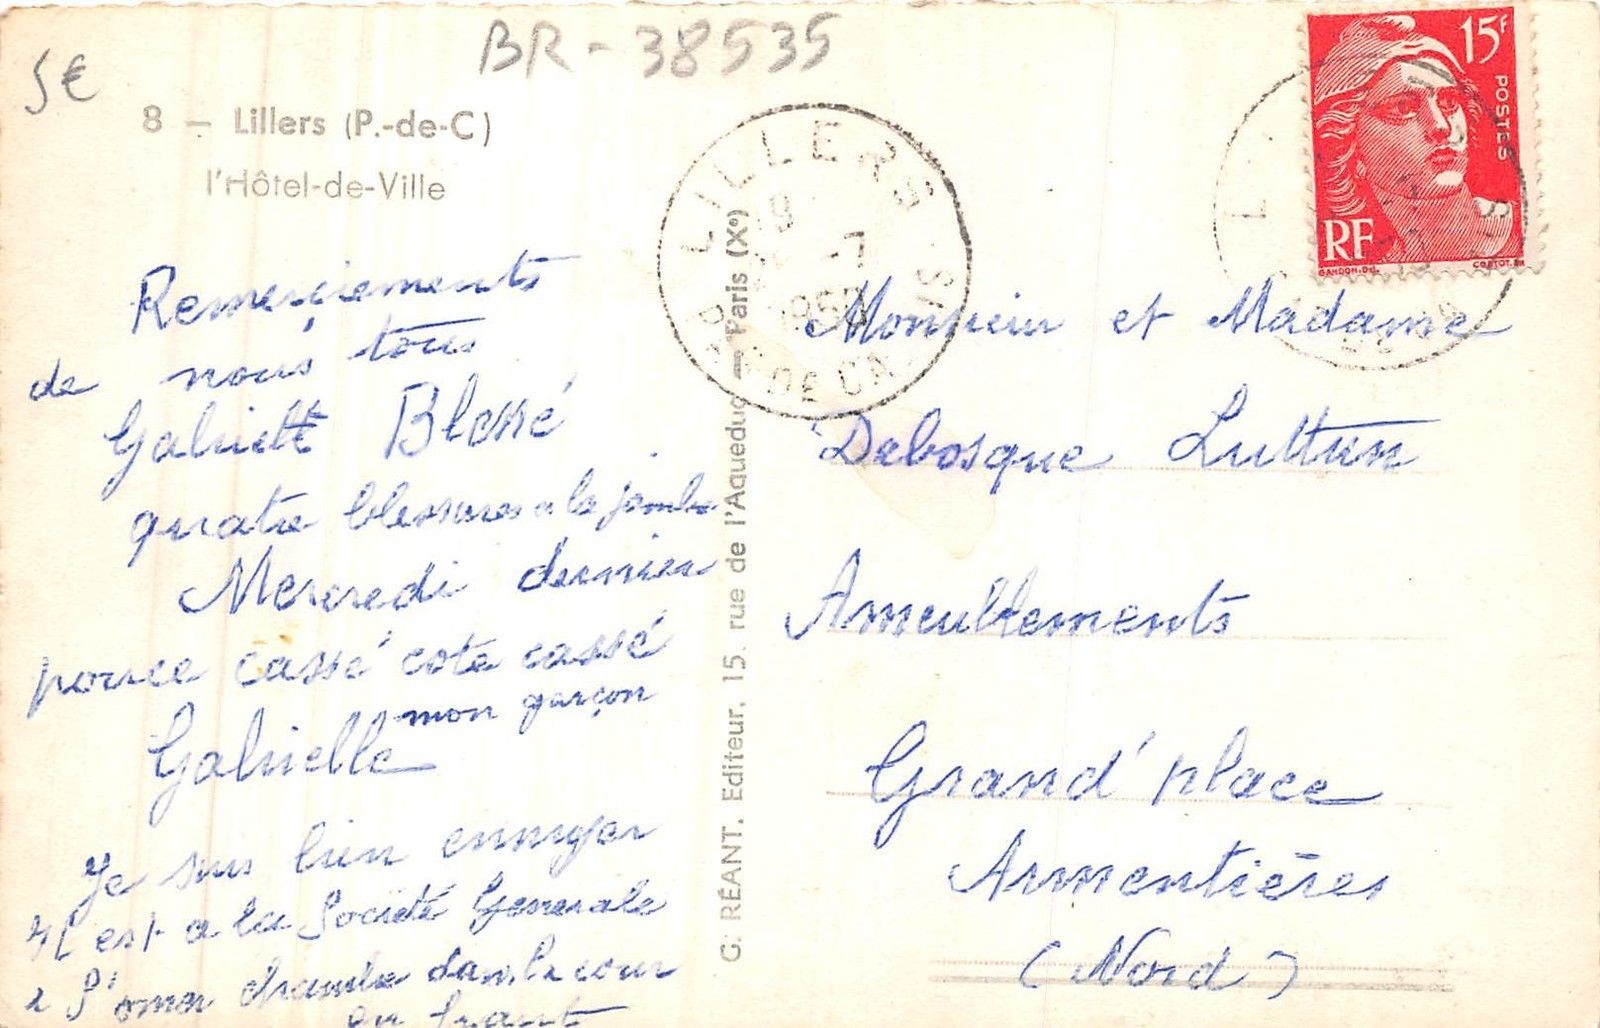 5€
BR-38535
8 — Lillers (P.-de-C)
l'Hôtel-de-Ville
Remerciements
de nous tous
Gabrielle Blessé
quatre blessures a la jambe
Mercredi dernier
pouce cassé cote cassé
mon garçon
Gabrielle
Je suis bien ennuyer
il est a la Société Generale
a S'omer chambre dans la cour
en haut
G. RÉANT. Editeur, 15. rue de l'Aqueduc — Paris (Xº)
LILLERS
PAS DE CALAIS
19
-7
15F
POSTES
RF
GANDON.DEL.
Monsieur et Madame
Debosque Luttun
Ameublements
Grand' place
Armentières
(Nord)